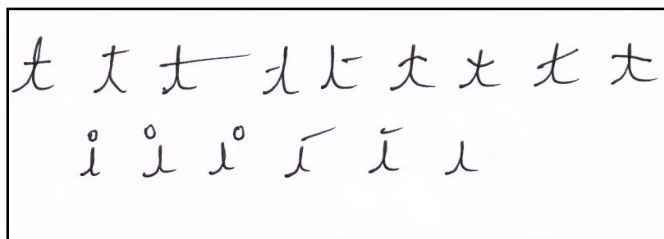 t t t t t t t t t
i i i i i i